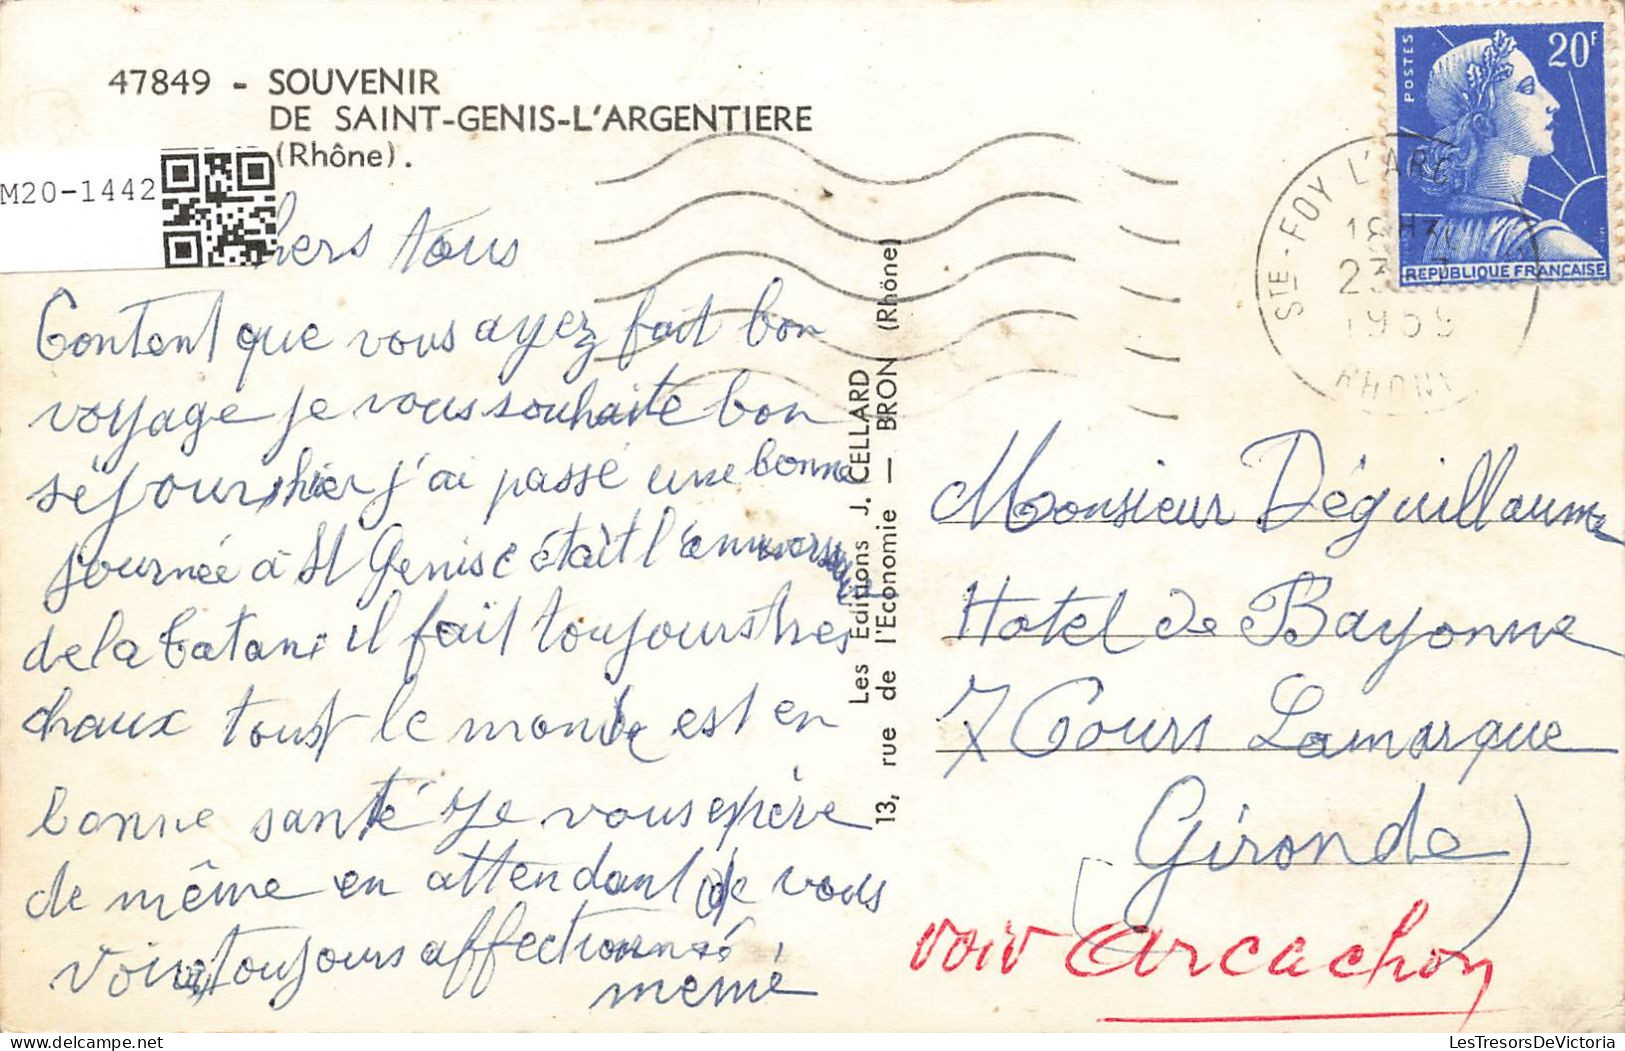 47849 - SOUVENIR
DE SAINT-GENIS-L'ARGENTIERE
(Rhône).
M20-1442
hers tous
Content que vous ayez fait bon
voyage je vous souhaite bon
séjour, hier j'ai passé une bonne
journée à St Genis c était l'anniversaire
de la Catani il fait toujours tres
chaux tout le monde est en
bonne santé je vous epère
de même en attendant de vous
voir, toujours affectionné
memé
Les Editions J. CELLARD
13, rue de l'Economie — BRON (Rhône)
POSTES
20F
REPUBLIQUE FRANÇAISE
STE-FOY L'ARG
18H
23
1959
RHONE
Monsieur Déguillaume
Hotel de Bayonne
7 Cours Lamarque
Gironde)
voir Arcachon
LesTresorsDeVictoria.com